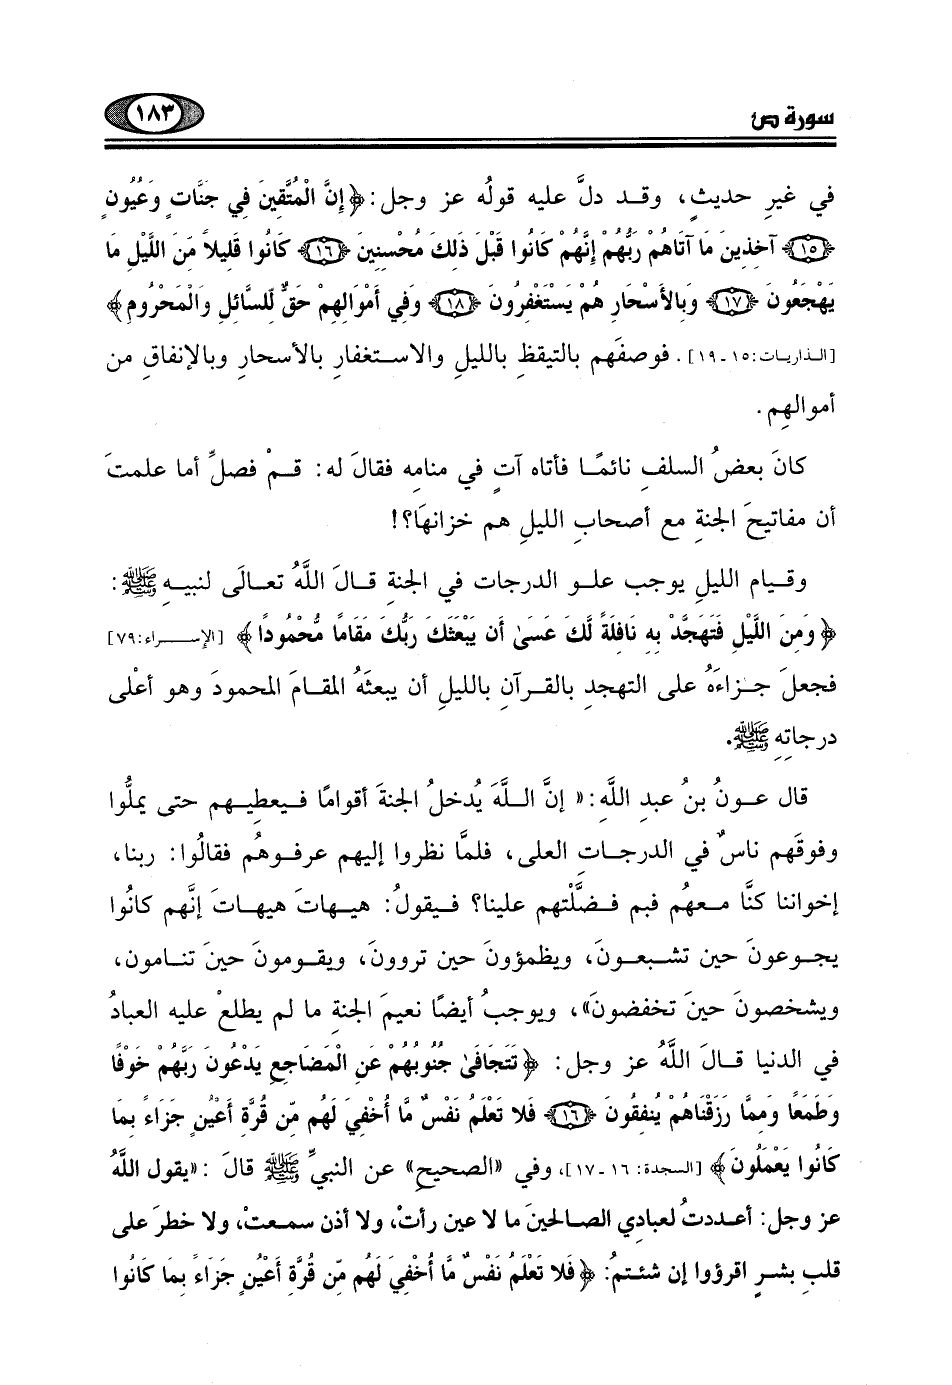 سورة ص
١٨٣
في غيرِ حديثٍ، وقـد دلَّ عليه قولُه عز وجل: ﴿ إِنَّ الْمُتَّقِينَ فِي جَنَّاتٍ وَعُيُونٍ
﴿١٥﴾ آخِذِينَ مَا آتَاهُمْ رَبُّهُمْ إِنَّهُمْ كَانُوا قَبْلَ ذَلِكَ مُحْسِنِينَ ﴿١٦﴾ كَانُوا قَلِيلاً مِّنَ اللَّيْلِ مَا
يَهْجَعُونَ ﴿١٧﴾ وَبِالأَسْحَارِ هُمْ يَسْتَغْفِرُونَ ﴿١٨﴾ وَفِي أَمْوَالِهِمْ حَقٌّ لِّلسَّائِلِ وَالْمَحْرُومِ ﴾
[الـذاريـات: ١٥ - ١٩] . فوصفَهم بالتيقظِ بالليلِ والاسـتغفارِ بالأسحارِ وبالإنفاقِ من
أموالهِم .
كانَ بعضُ السلفِ نائمًا فأتاه آتٍ في منامِه فقالَ له: قـمْ فصلِّ أما علمتَ
أن مفاتيحَ الجنةِ مع أصحابِ الليلِ هم خزانهَا؟!
وقـيام الليلِ يوجب علـو الدرجات في الجنةِ قـالَ اللَّهُ تعـالَى لنبيـهِ ﷺ :
﴿ وَمِنَ اللَّيْلِ فَتَهَجَّدْ بِهِ نَافِلَةً لَّكَ عَسَىٰ أَن يَبْعَثَكَ رَبُّكَ مَقَامًا مَّحْمُودًا ﴾ [الإسـراء: ٧٩]
فجعلَ جـزاءَهُ على التهجدِ بالقـرآنِ بالليلِ أن يبعثَهُ المقامَ المحمودَ وهو أعْلى
درجاتِهِ ﷺ.
قال عـونُ بنُ عبدِ اللَّهِ: « إنَّ اللـهَ يُدخلُ الجنةَ أقوامًا فـيعطِيـهم حتى يملُّوا
وفوقَهم ناسٌ في الدرجـاتِ العلى، فلمَّا نظروا إليهم عرفـوهُم فقالُوا: ربنا،
إخواننا كنَّا مـعهُم فبم فـضَّلْتهم علينا؟ فـيقولُ: هيـهاتَ هيهاتَ إنَّهم كانُوا
يجـوعونَ حين تشـبعـونَ، ويظمؤونَ حين تروونَ، ويقـومونَ حينَ تنـامون،
ويشخصونَ حينَ تخفضونَ»، ويوجبُ أيضًا نعيمَ الجنةِ ما لم يطلعْ عليه العبادُ
في الدنيا قـالَ اللَّهُ عز وجل: ﴿ تَتَجَافَىٰ جُنُوبُهُمْ عَنِ الْمَضَاجِعِ يَدْعُونَ رَبَّهُمْ خَوْفًا
وَطَمَعًا وَمِمَّا رَزَقْنَاهُمْ يُنفِقُونَ ﴿١٦﴾ فَلا تَعْلَمُ نَفْسٌ مَّا أُخْفِيَ لَهُم مِّن قُرَّةِ أَعْيُنٍ جَزَاءً بِمَا
كَانُوا يَعْمَلُونَ ﴾ [السجدة: ١٦ -١٧]، وفي «الصحيحِ» عن النبيِّ ﷺ قالَ : «يقول اللَّهُ
عز وجل: أعـددتُ لعبادِي الصـالحينَ ما لا عين رأتْ، ولا أذن سمـعتْ، ولا خطرَ على
قلبِ بشـرٍ اقرؤوا إن شئـتمُ: ﴿ فَلا تَعْلَمُ نَفْسٌ مَّا أُخْفِيَ لَهُم مِّن قُرَّةِ أَعْيُنٍ جَزَاءً بِمَا كَانُوا